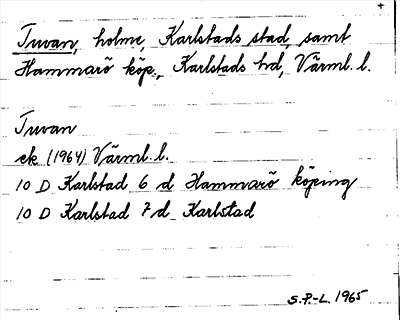 Tuvan, holme, Karlstads stad, samt
Hammarö köp., Karlstads hd, Värml. l.
Tuvan
ek (1964) Värml. l.
10 D Karlstad 6 d Hammarö köping
10 D Karlstad 7 d Karlstad
S.P.-L. 1965